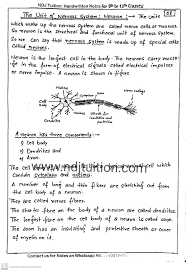 NDJ Tuition: Handwritten Notes for 8th to 12th (Class)
The Unit of Nervous System: Neuron :- The cells
which make up the nervous system are called nerve cells or neurons.
So neuron is the structural and functional unit of nervous system.
So we can say that nervous system is made up of special cells
called Neurons.
Neuron is the longest cell in the body. The neurons carry messages
in the form of electrical signals called electrical impulses
or nerve impulse. A neuron is shown in figure
A neuron has three components:-
i) Cell body
ii) Dendrites and
iii) Axon.
The cell body
cytoplasm and nucleus.
A number of long and thin fibres are stretching out from
the cell body of a neuron.
They are called nerve fibres.
The shorter fibre on the body of a neuron are called dendrites.
The longest fibre on the cell body of a neuron is called axon.
The axon has an insulating and protective sheath or cover
of myelin on it.
www.ndjtuition.com
Contact us for Notes on Whatsapp No.